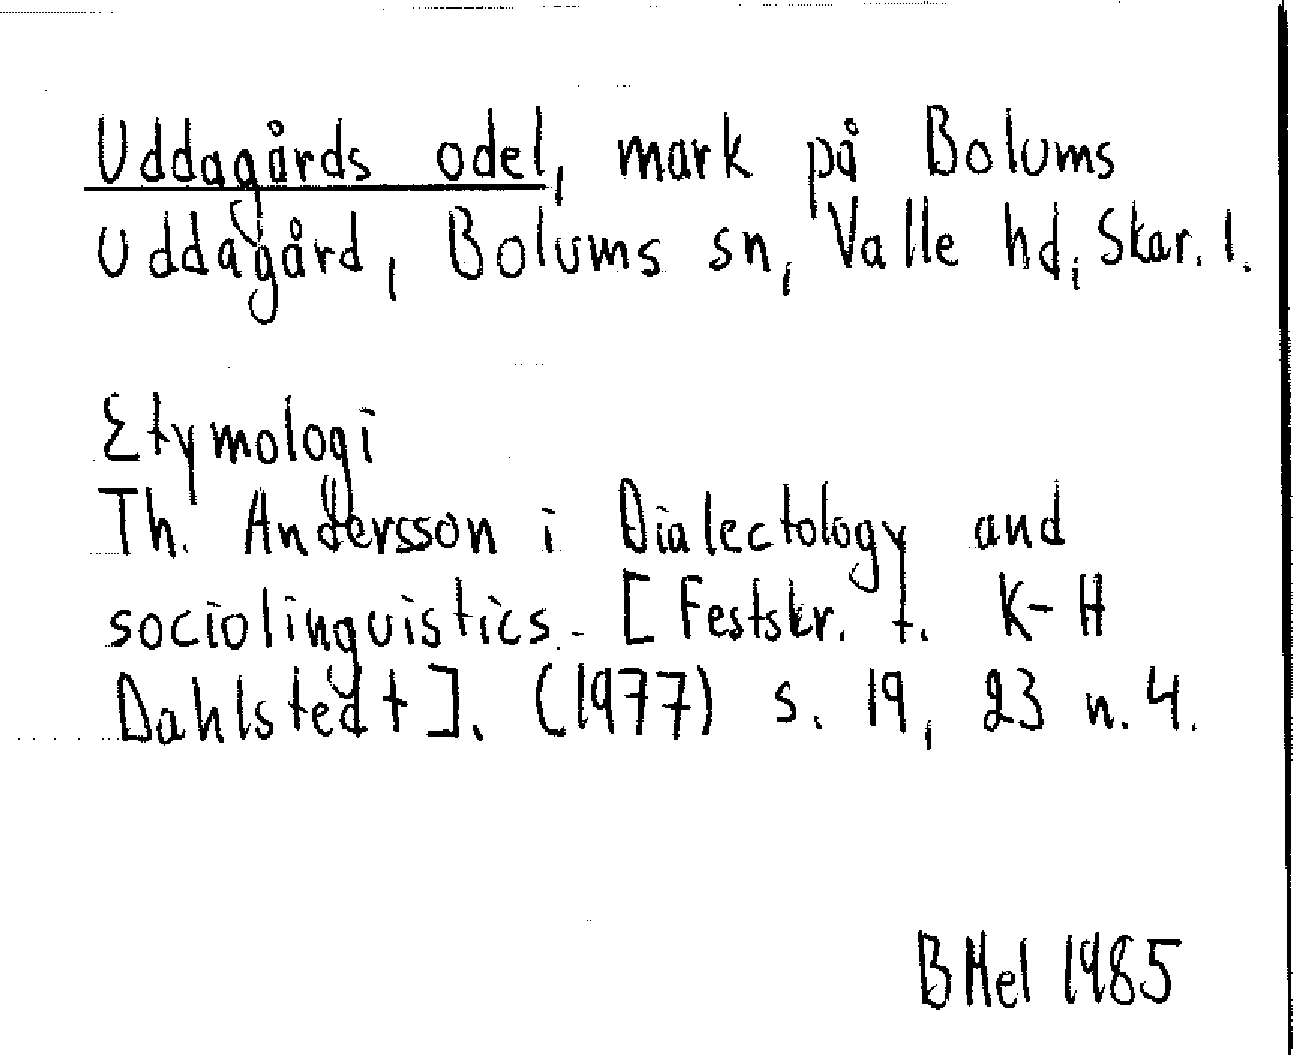 Uddagårds odel, mark på Bolums
Uddagård, Bolums sn, Valle hd, Skar. l.
Etymologi
Th. Andersson i Dialectology and
sociolinguistics. [Festskr. t. K-H
Dahlstedt]. (1977) s. 19, 23 n. 4.
BHel 1985